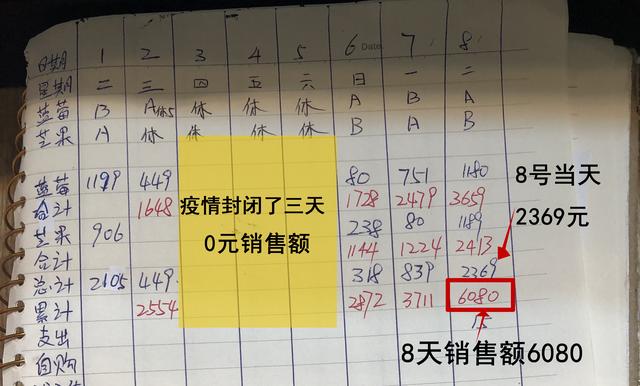 日期 1 2 3 4 5 6 Date 7 8
星期 二 三 四 五 六 日 一 二
蓝莓 B A休5 休 休 休 A B A
芒果 A 休 休 休 休 B A B
蓝莓 1199 449 80 751 1180
合计 1648 1728 2479 3659
芒果 906 238 80 1189
合计 1144 1224 2413
总计 2105 449. 318 839 2369
累计 2554 2872 3711 6080
支出 15
自购
疫情封闭了三天
0元销售额
8号当天
2369元
8天销售额6080